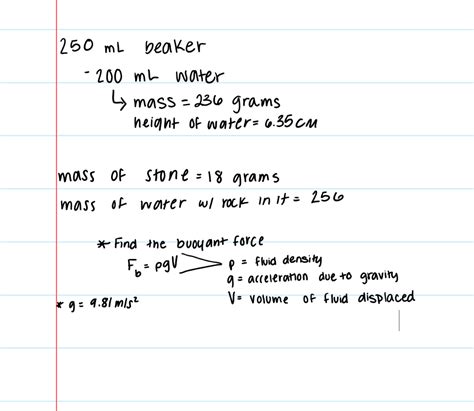 250 mL beaker
- 200 mL water
↳ mass = 236 grams
height of water = 6.35 cm
mass of stone = 18 grams
mass of water w/ rock in it = 256
* Find the buoyant force
F_b = ρgV
ρ = fluid density
g = acceleration due to gravity
V = volume of fluid displaced
* g = 9.81 m/s²